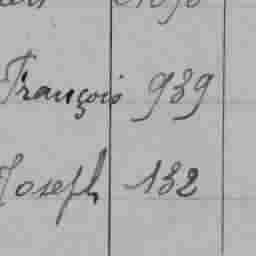 François 939
Joseph 132